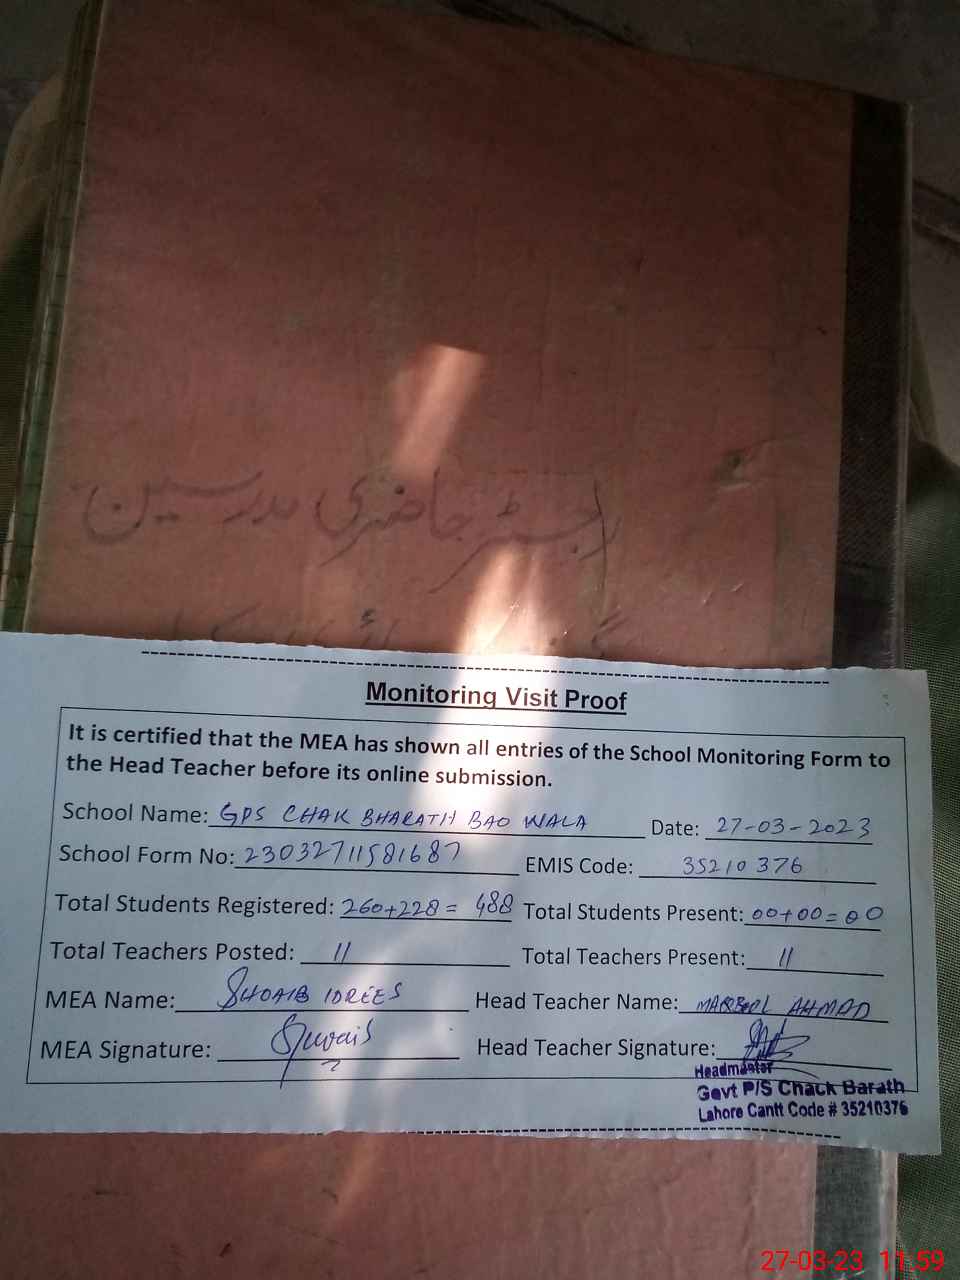 رجسٹر حاضری مدرسین
Monitoring Visit Proof
It is certified that the MEA has shown all entries of the School Monitoring Form to
the Head Teacher before its online submission.
School Name: GPS CHAK BHARATH BAO WALA Date: 27-03-2023
School Form No: 23032711581687 EMIS Code: 35210376
Total Students Registered: 260+228= 488 Total Students Present: 00+00=00
Total Teachers Posted: 11 Total Teachers Present: 11
MEA Name: SHOAIB IDREES Head Teacher Name: MAQBOOL AHMAD
MEA Signature: Head Teacher Signature:
Headmaster
Govt P/S Chack Barath
Lahore Cantt Code # 35210376
27-03-23 11:59